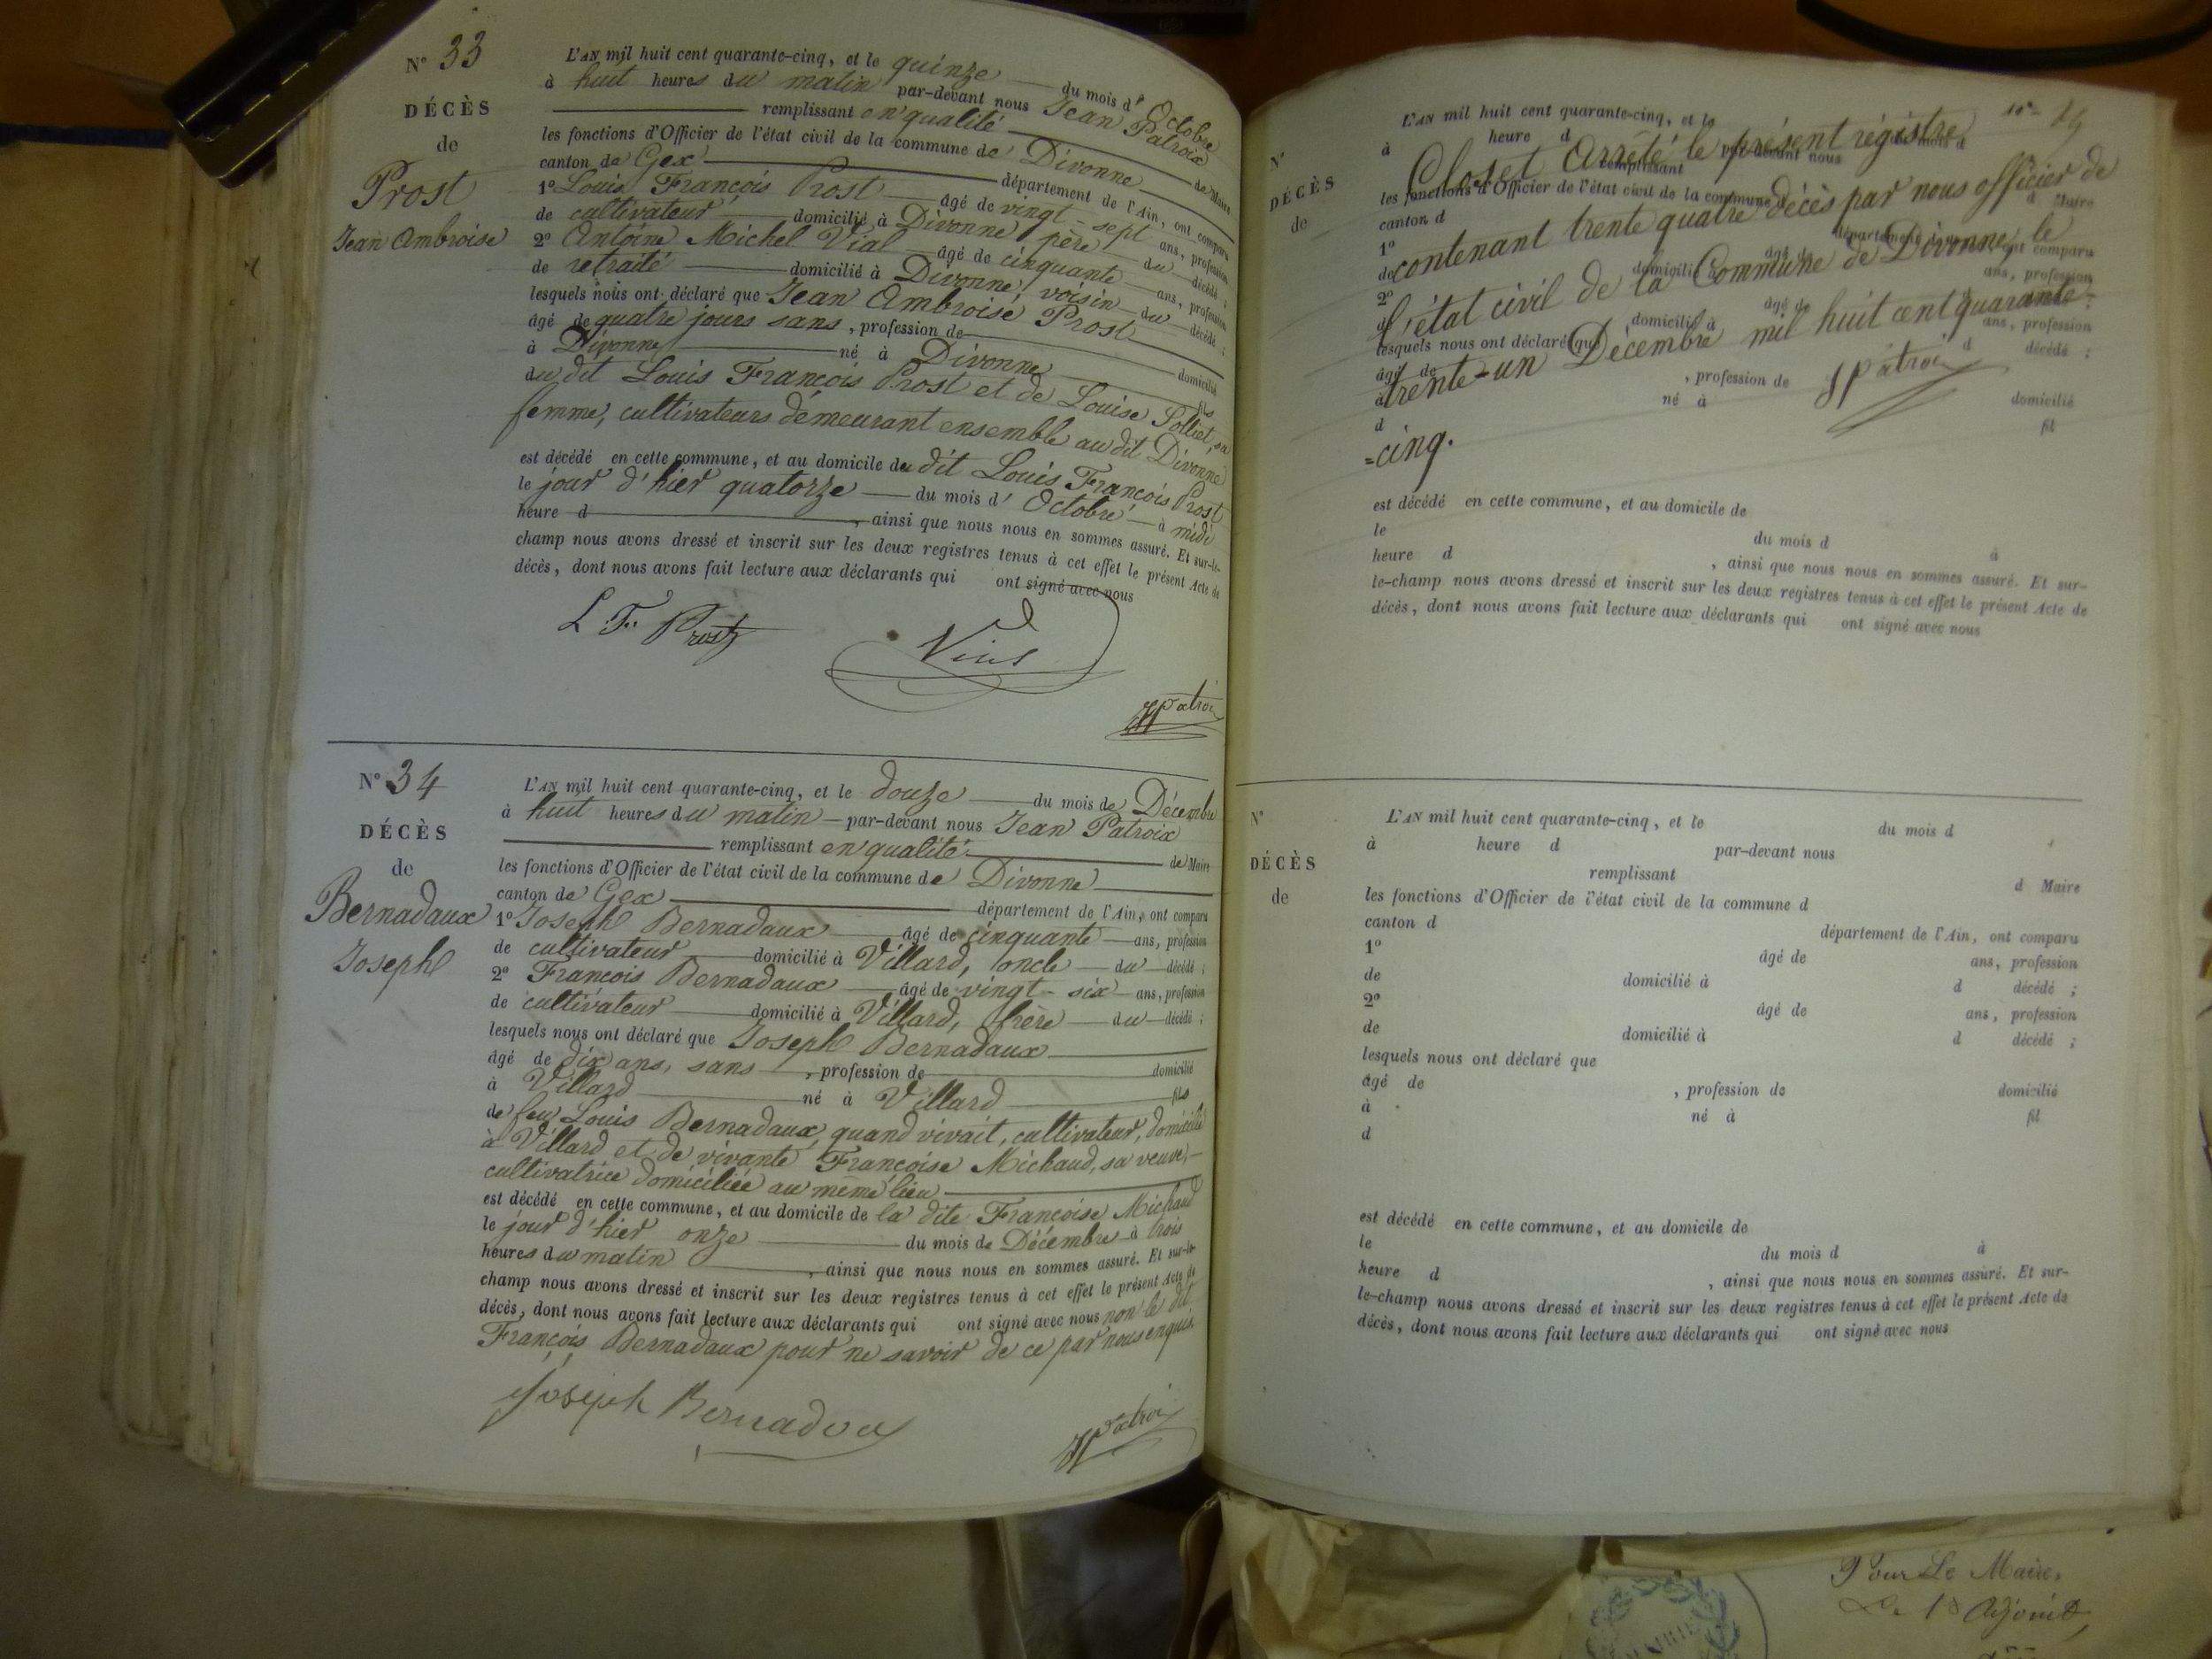 N° 33
DÉCÈS
de
Prost
Jean Ambroise
L'AN mil huit cent quarante-cinq, et le quinze du mois d'Octobre
à huit heures du matin par-devant nous Jean Patroix
remplissant en qualité de Maire
les fonctions d'Officier de l'état civil de la commune de Divonne
canton de Gex département de l'Ain, ont comparu
1° Louis François Prost âgé de vingt-sept ans, profession
de cultivateur domicilié à Divonne, père du décédé ;
2° Antoine Michel Vial âgé de cinquante ans, profession
de retraité domicilié à Divonne, voisin du décédé ;
lesquels nous ont déclaré que Jean Ambroise Prost
âgé de quatre jours sans, profession de domicilié
à Divonne né à Divonne fils
du dit Louis François Prost et de Louise Solliet, sa
femme, cultivateurs demeurant ensemble au dit Divonne
est décédé en cette commune, et au domicile du dit Louis François Prost
le jour d'hier quatorze du mois d'Octobre à midi
heure d , ainsi que nous nous en sommes assuré. Et sur-le-
champ nous avons dressé et inscrit sur les deux registres tenus à cet effet le présent Acte de
décès, dont nous avons fait lecture aux déclarants qui ont signé avec nous
L. F. Prost
Vial
JPatroix
N° 34
DÉCÈS
de
Bernadaux
Joseph
L'AN mil huit cent quarante-cinq, et le douze du mois de Décembre
à huit heures du matin par-devant nous Jean Patroix
remplissant en qualité de Maire
les fonctions d'Officier de l'état civil de la commune de Divonne
canton de Gex département de l'Ain, ont comparu
1° Joseph Bernadaux âgé de cinquante ans, profession
de cultivateur domicilié à Villard, oncle du décédé ;
2° François Bernadaux âgé de vingt-six ans, profession
de cultivateur domicilié à Villard, frère du décédé ;
lesquels nous ont déclaré que Joseph Bernadaux
âgé de dix ans, sans , profession de domicilié
à Villard né à Villard fils
de feu Louis Bernadaux, quand vivait, cultivateur, domicilié
à Villard et de vivante Françoise Michaud, sa veuve,
cultivatrice domiciliée au même lieu
est décédé en cette commune, et au domicile de la dite Françoise Michaud
le jour d'hier onze du mois de Décembre à trois
heures du matin , ainsi que nous nous en sommes assuré. Et sur-le-
champ nous avons dressé et inscrit sur les deux registres tenus à cet effet le présent Acte de
décès, dont nous avons fait lecture aux déclarants qui ont signé avec nous non le dit
François Bernadaux pour ne savoir de ce par nous enquis.
Joseph Bernadaux
JPatroix
N°
DÉCÈS
de
L'AN mil huit cent quarante-cinq, et le du mois d
à heure d par-devant nous
remplissant d Maire
les fonctions d'Officier de l'état civil de la commune d
canton d département de l'Ain, ont comparu
1° âgé de ans, profession
de domicilié à d décédé ;
2° âgé de ans, profession
de domicilié à d décédé ;
lesquels nous ont déclaré que
âgé de , profession de domicilié
à né à fil
d
Clos et Arrêté le présent régistre
contenant trente quatre décès par nous officier de
l'état civil de la Commune de Divonne, le
trente-un Décembre mil huit cent quarante-
-cinq.
JPatroix
est décédé en cette commune, et au domicile de
le du mois d à
heure d , ainsi que nous nous en sommes assuré. Et sur-
le-champ nous avons dressé et inscrit sur les deux registres tenus à cet effet le présent Acte de
décès, dont nous avons fait lecture aux déclarants qui ont signé avec nous
N°
DÉCÈS
de
L'AN mil huit cent quarante-cinq, et le du mois d
à heure d par-devant nous
remplissant d Maire
les fonctions d'Officier de l'état civil de la commune d
canton d département de l'Ain, ont comparu
1° âgé de ans, profession
de domicilié à d décédé ;
2° âgé de ans, profession
de domicilié à d décédé ;
lesquels nous ont déclaré que
âgé de , profession de domicilié
à né à fil
d
est décédé en cette commune, et au domicile de
le du mois d à
heure d , ainsi que nous nous en sommes assuré. Et sur-
le-champ nous avons dressé et inscrit sur les deux registres tenus à cet effet le présent Acte de
décès, dont nous avons fait lecture aux déclarants qui ont signé avec nous
Pour Le Maire,
Adjoint,